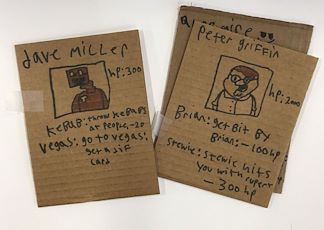 Dave Miller
hp: 300
Kebab: throw Kebabs
at people, -20
Vegas: go to vegas:
get a sif
card
Peter griffin
hp: 2000
Brian: get Bit By
Brian: -100 hp
Stewie: Stewie hits
You with rupert
-300 hp